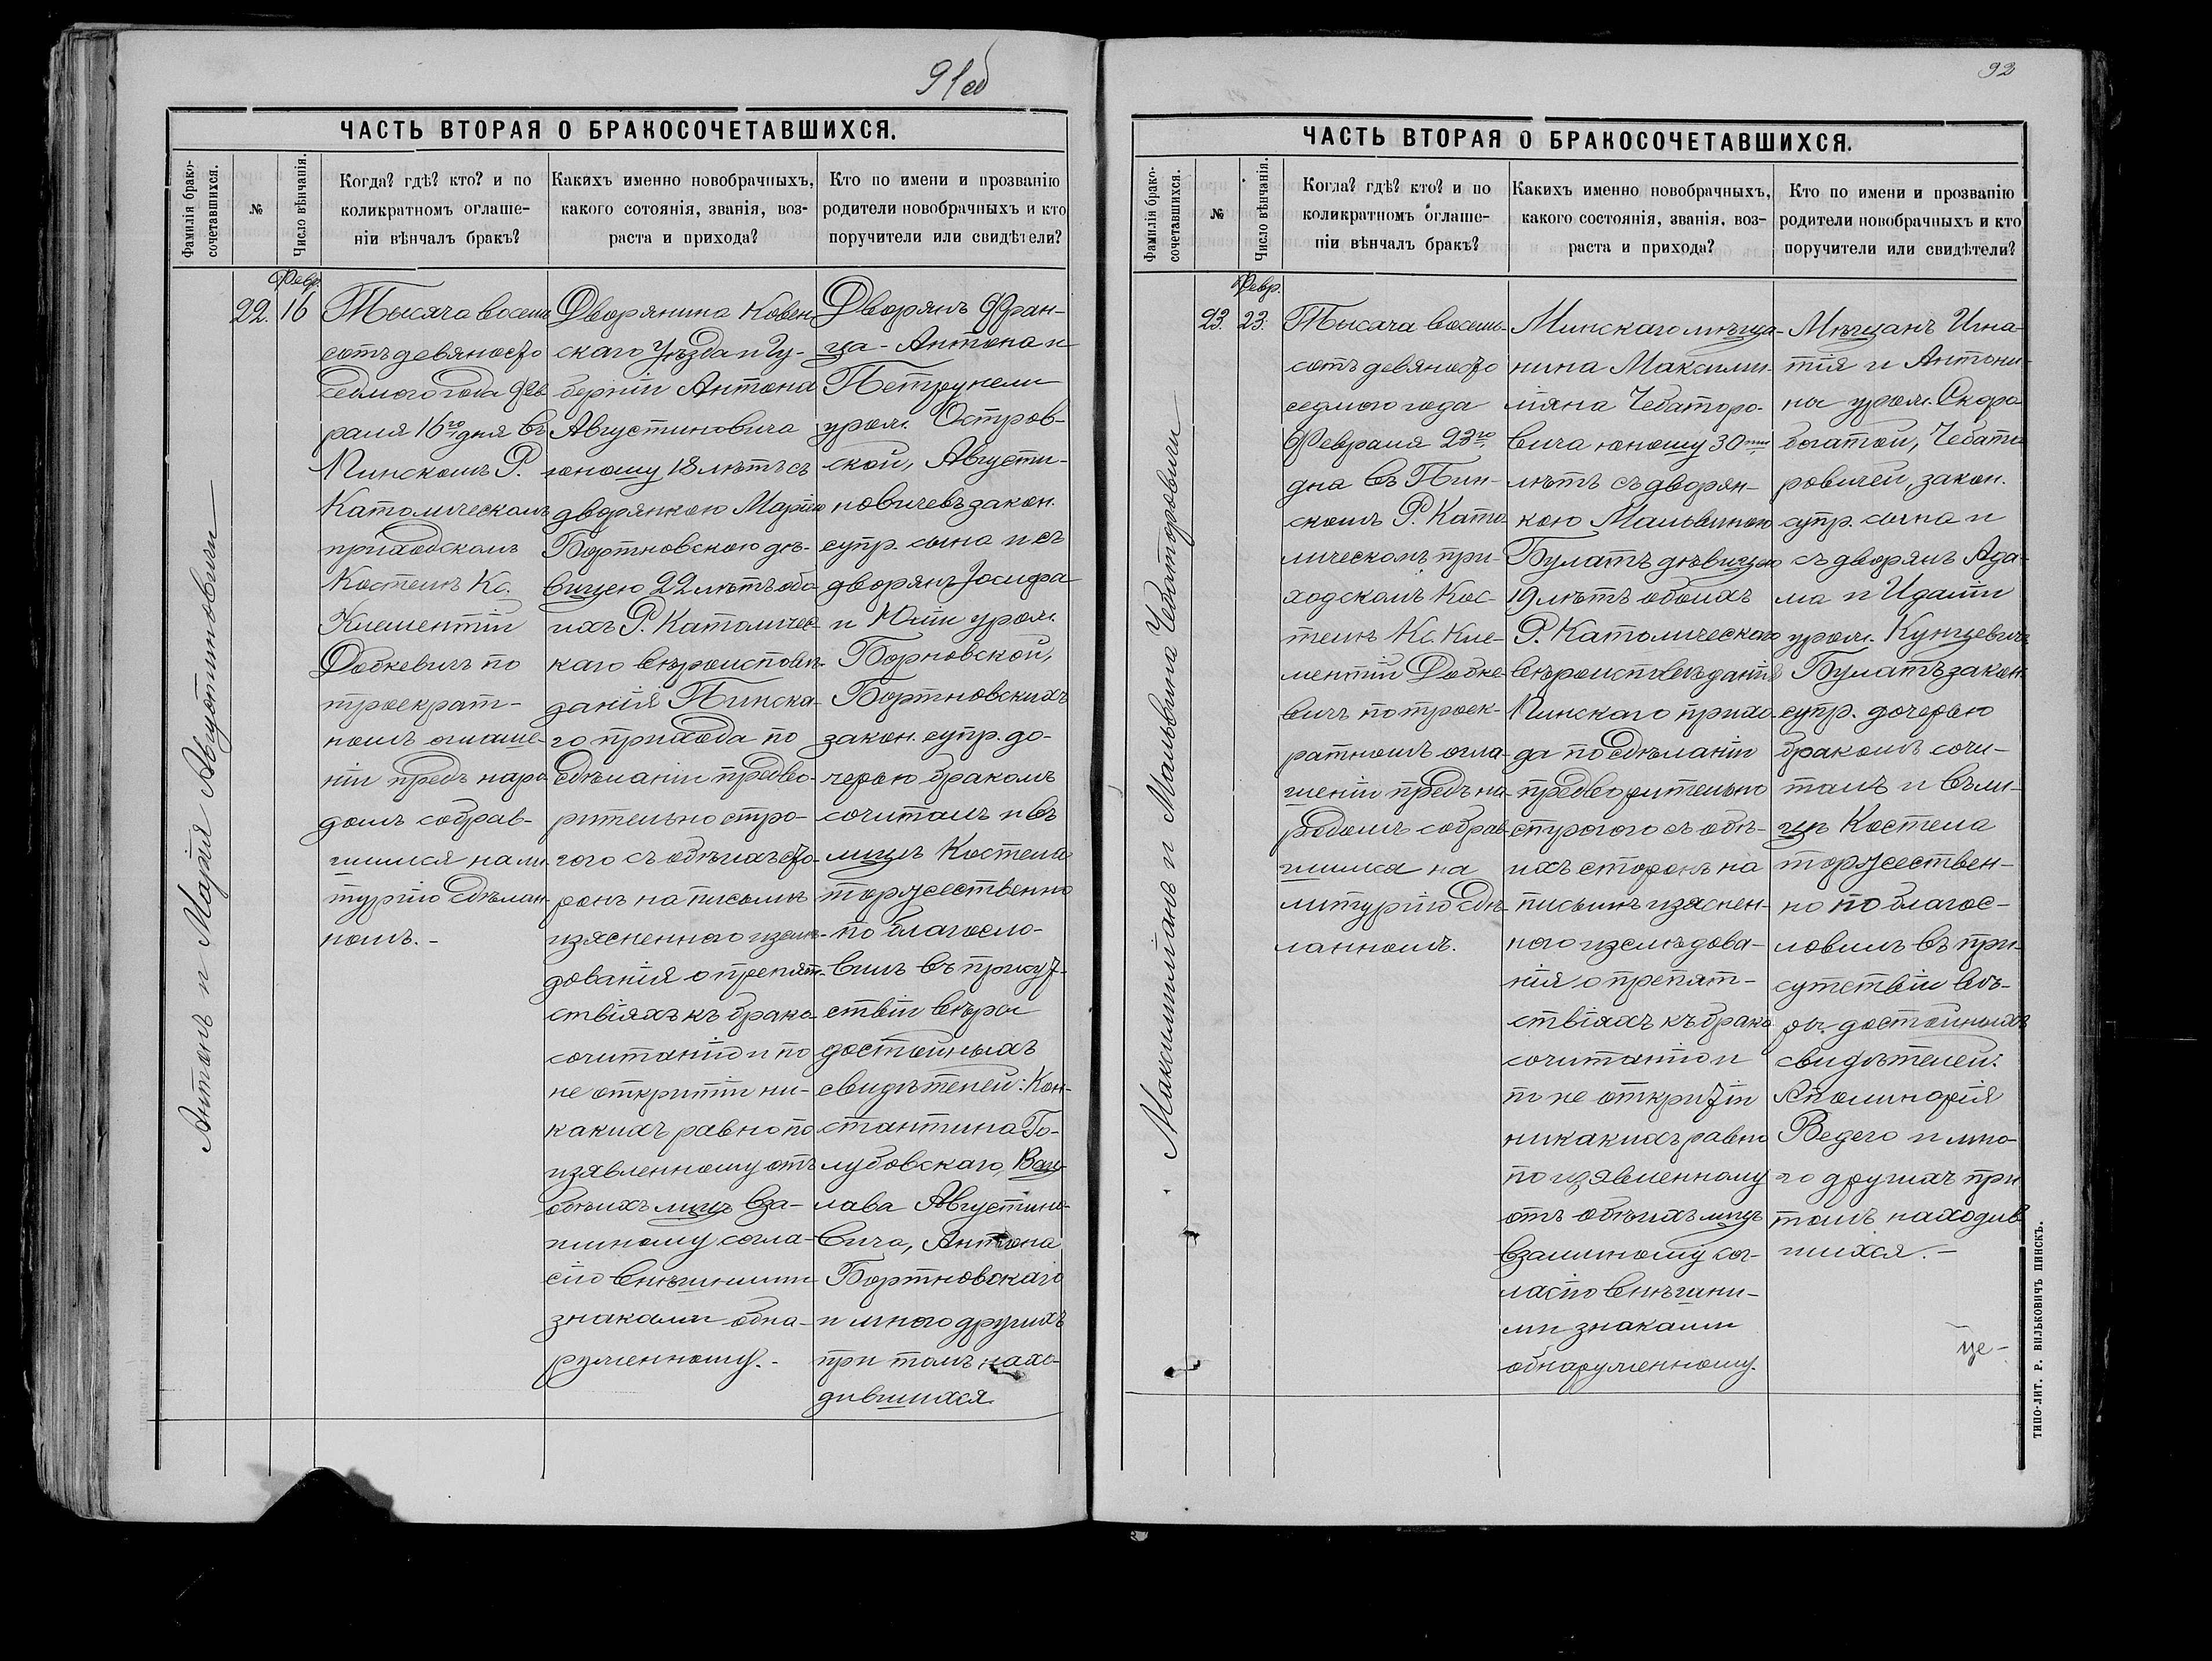 91об
ЧАСТЬ ВТОРАЯ О БРАКОСОЧЕТАВШИХСЯ.
Фамилія брако-
сочетавшихся.
№
Число вѣнчанія.
Когда? гдѣ? кто? и по
коликратномъ оглаше-
ніи вѣнчалъ бракъ?
Какихъ именно новобрачныхъ,
какого сотоянія, званія, воз-
раста и прихода?
Кто по имени и прозванію
родители новобрачныхъ и кто
поручители или свидѣтели?
Антонъ и Марія Августиновичи
22.
Февр.
16
Тысяча восемь
сотъ девяносто
седмого года Фев
раля 16го дня въ
Пинскомъ Р.
Католическомъ
приходскомъ
Костелѣ Кс.
Клементій
Добкевичъ по
троекрат-
номъ оглаше-
ніи предъ наро
домъ собрав-
шимся на ли-
тургію сдѣлан-
номъ.-
Дворянина Ковен
скаго Уѣзда и Гу-
берніи Антона
Августиновича
юношу 18 лѣтъ съ
дворянкою Маріею
Бортновскою дѣ-
вицею 22 лѣтъ обо
ихъ Р. Католичес-
каго вѣроисповѣ-
данія Пинска-
го прихода по
сдѣланіи предво-
рительно стро-
гого съ обѣихъ сто-
ронъ на письмѣ
изясненного изслѣ-
дованія о препят-
ствіяхъ къ брако-
сочитанію и по
не откритіи ни-
какихъ равно по
изявленному отъ
обѣихъ лицъ вза-
имному согла-
сію внѣшними
знаками обна-
руженному.-
Дворянъ Фран-
ца-Антона и
Петрунели
урож. Остров-
ской, Августи-
новичевъ закон.
супр. сына и съ
дворянъ Іосифа
и Юліи урож.
Борновской,
Бортновскихъ
закон. супр. до-
черью бракомъ
сочиталъ и въ
лицѣ Костела
торжественно
по благосло-
вилъ въ присут-
ствіи вѣры
достойныхъ
свидѣтелей: Кон-
стантина Го-
лубовскаго, Вац-
лава Августино-
вича, Антона
Бортновскаго
и много другихъ
при томъ нахо-
дившихся.
92
ЧАСТЬ ВТОРАЯ О БРАКОСОЧЕТАВШИХСЯ.
Фамилія брако-
сочетавшихся.
№
Число вѣнчанія.
Когда? гдѣ? кто? и по
коликратномъ оглаше-
ніи вѣнчалъ бракъ?
Какихъ именно новобрачныхъ,
какого состоянія, званія, воз-
раста и прихода?
Кто по имени и прозванію
родители новобрачныхъ и кто
поручители или свидѣтели?
Максимиліанъ и Мальвина Чебаторовичи
23.
Февр.
23.
Тысяча восемь-
сотъ девяносто
седмого года
Февраля 23го
дна въ Пин-
скомъ Р. Като-
лическомъ при-
ходскомъ Кос-
телѣ Кс. Кле-
ментій Добке-
вичъ по троек-
ратномъ огла-
шеніи предъ на-
родомъ собрав-
шимся на
литургію сдѣ-
ланномъ.
Минскаго мѣща-
нина Максими-
ліяна Чебаторо-
вича юношу 30ти
лѣтъ съ дворян-
кою Мальвиною
Булатъ дѣвицею
19 лѣтъ обоихъ
Р. Католическаго
вѣроисповѣданія
Пинскаго прихо-
да по сдѣланіи
предворительно
строгого съ обѣ-
ихъ сторонъ на
письмѣ изяснен-
ного изслѣдова-
нія о препят-
ствіяхъ къ брако
сочитанію и
по не открытіи
никакихъ равно
по изявленному
отъ обѣихъ лицъ
взаимному сог-
ласію внѣшни-
ми знаками
обнаруженному.
Мѣщанъ Игна-
тія и Антони-
ны урож. Скоро
богатой, Чебато
ровичей, закон.
супр. сына и
съ дворянъ Ада-
ма и Идаліи
урож. Кунцевичъ
Булатъ закон.
супр. дочерью
бракомъ сочи-
талъ и въ ли-
цѣ Костела
торжествен-
но по благос-
ловилъ въ при-
сутствіи вѣ-
ры достойныхъ
свидѣтелей:
Аполинарія
Ведего и мно-
го другихъ при
томъ находив
шихся.-
ТИПО-ЛИТ. Р. ВИЛЬКОВИЧЪ ПИНСКЪ.